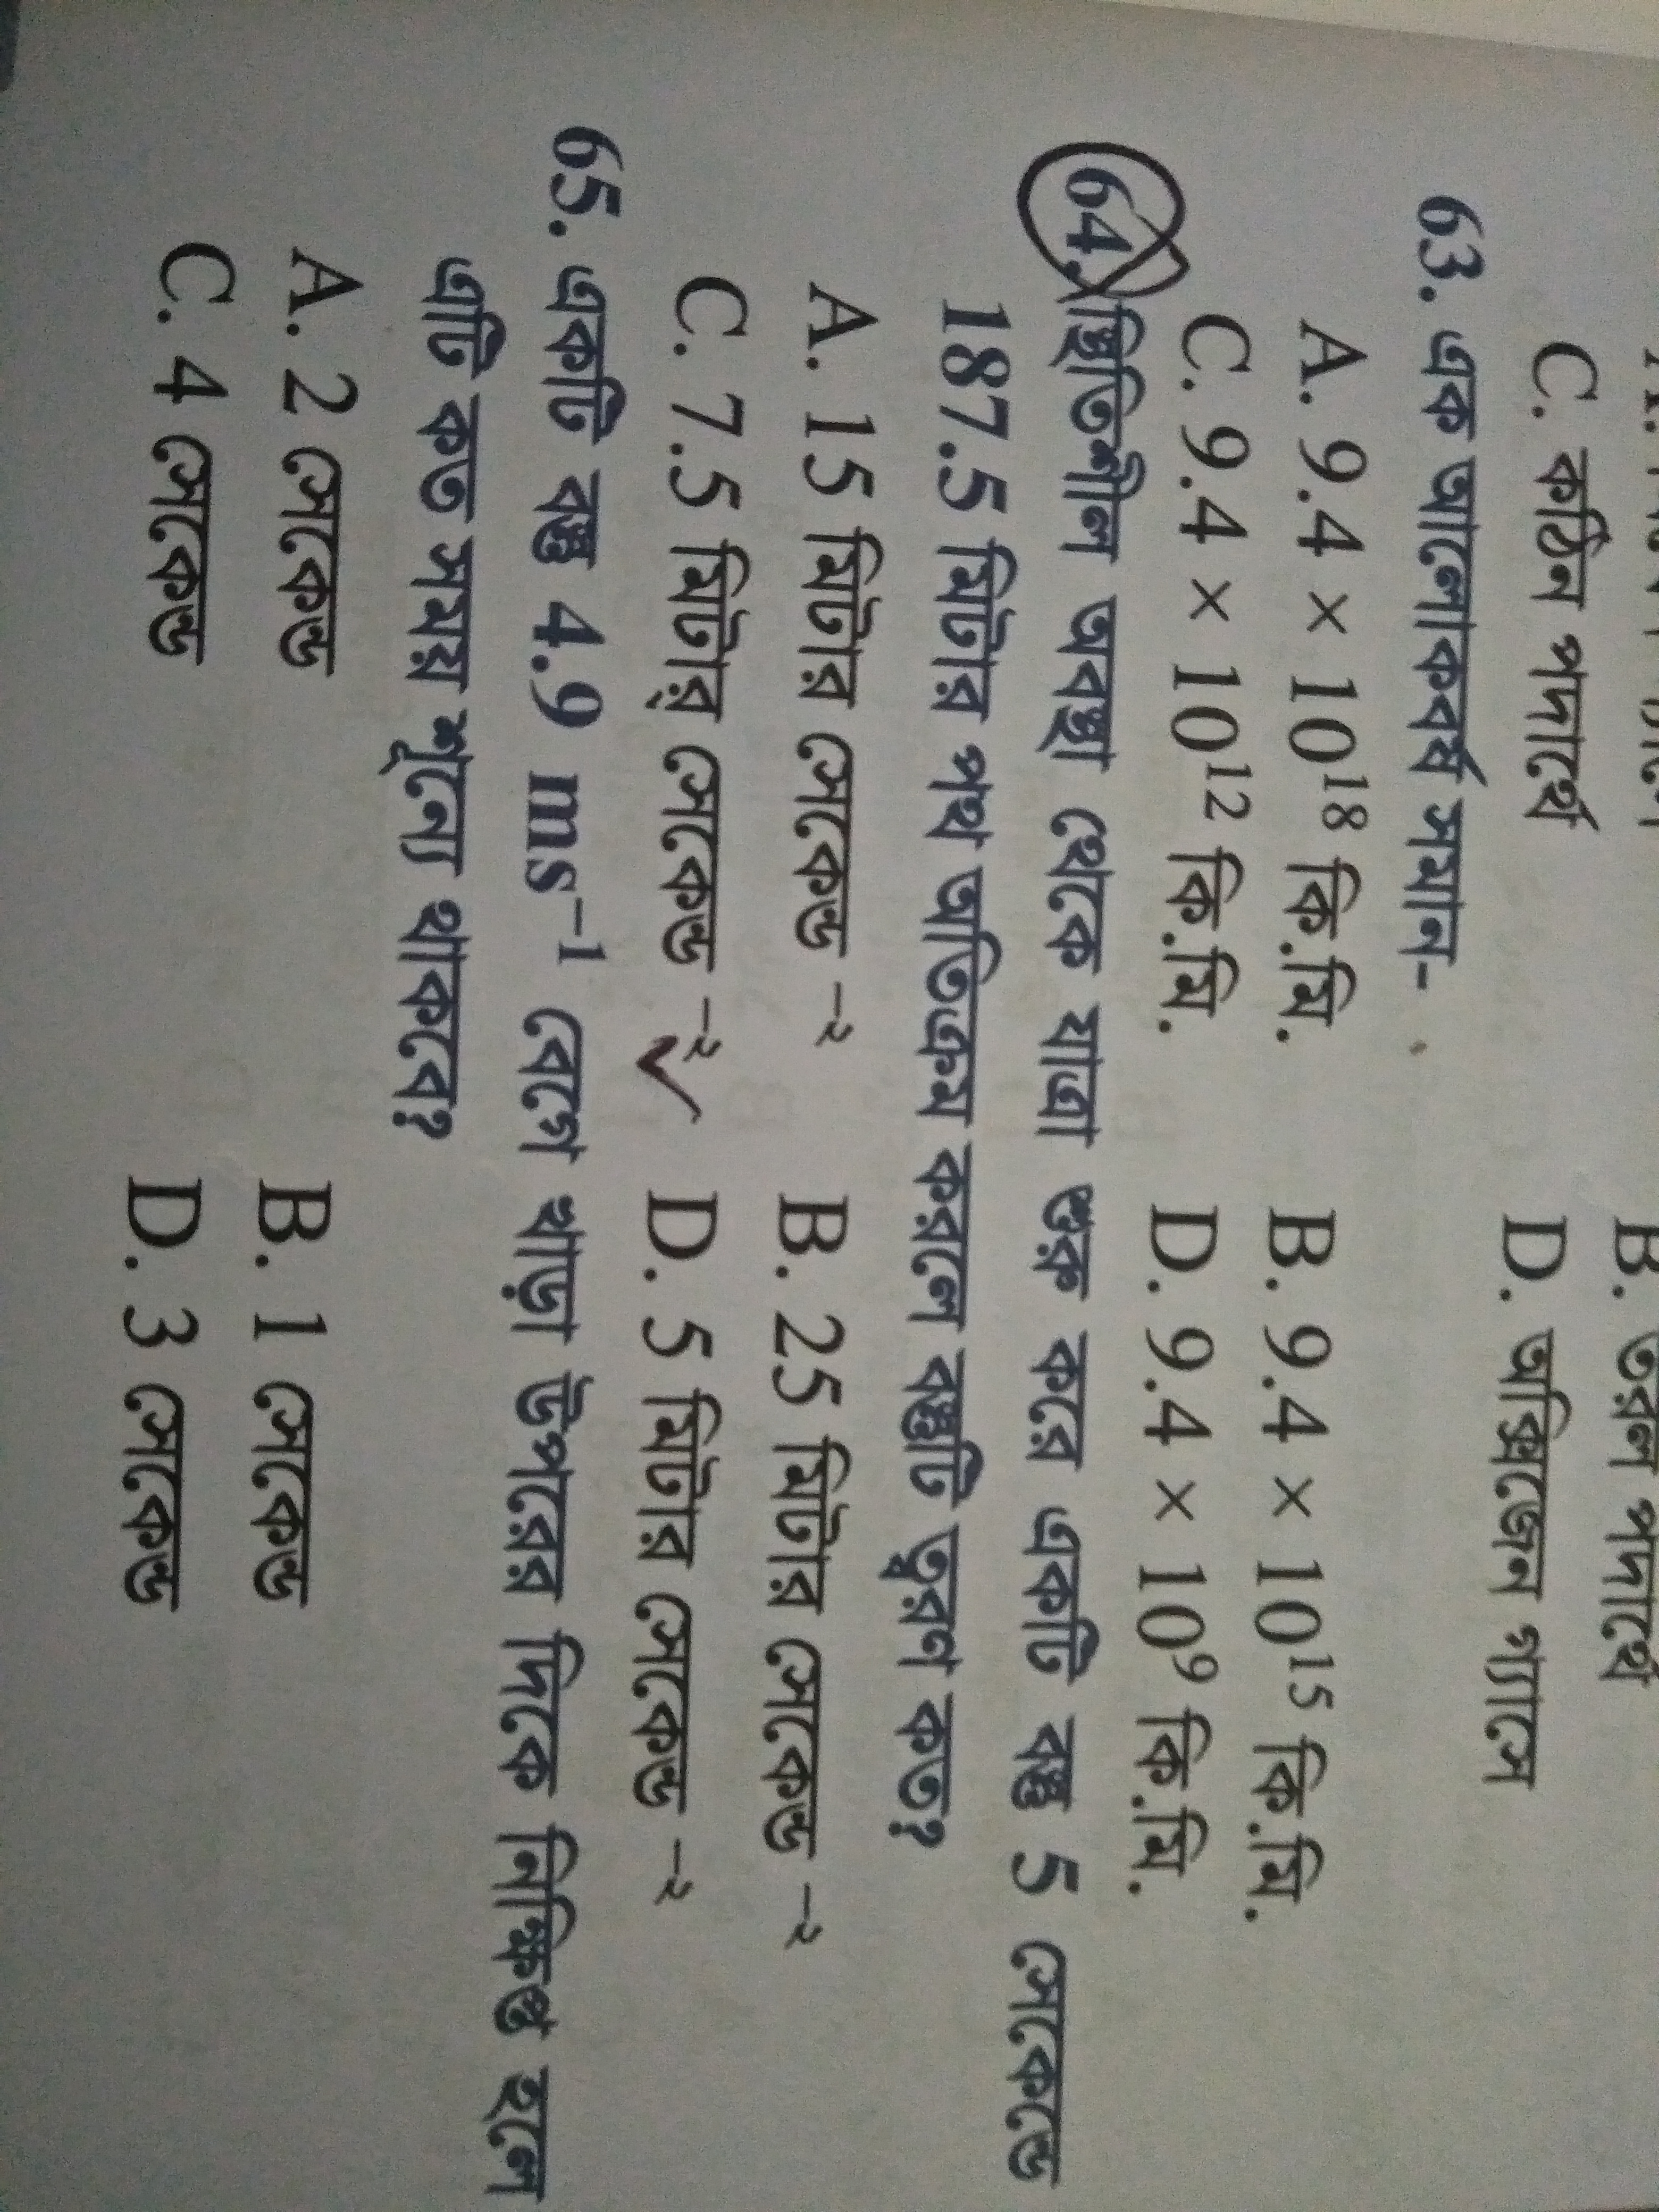 B. তরল পদার্থে
C. কঠিন পদার্থে D. অক্সিজেন গ্যাসে
63. এক আলোকবর্ষ সমান-
A. 9.4 × 10¹⁸ কি.মি. B. 9.4 × 10¹⁵ কি.মি.
C. 9.4 × 10¹² কি.মি. D. 9.4 × 10⁹ কি.মি.
64. স্থিতিশীল অবস্থা থেকে যাত্রা শুরু করে একটি বস্তু 5 সেকেন্ডে
187.5 মিটার পথ অতিক্রম করলে বস্তুটি ত্বরণ কত?
A. 15 মিটার সেকেন্ড ⁻² B. 25 মিটার সেকেন্ড ⁻²
C. 7.5 মিটার সেকেন্ড ⁻² D. 5 মিটার সেকেন্ড ⁻²
65. একটি বস্তু 4.9 ms⁻¹ বেগে খাড়া উপরের দিকে নিক্ষিপ্ত হলে
এটি কত সময় শূন্যে থাকবে?
A. 2 সেকেন্ড B. 1 সেকেন্ড
C. 4 সেকেন্ড D. 3 সেকেন্ড